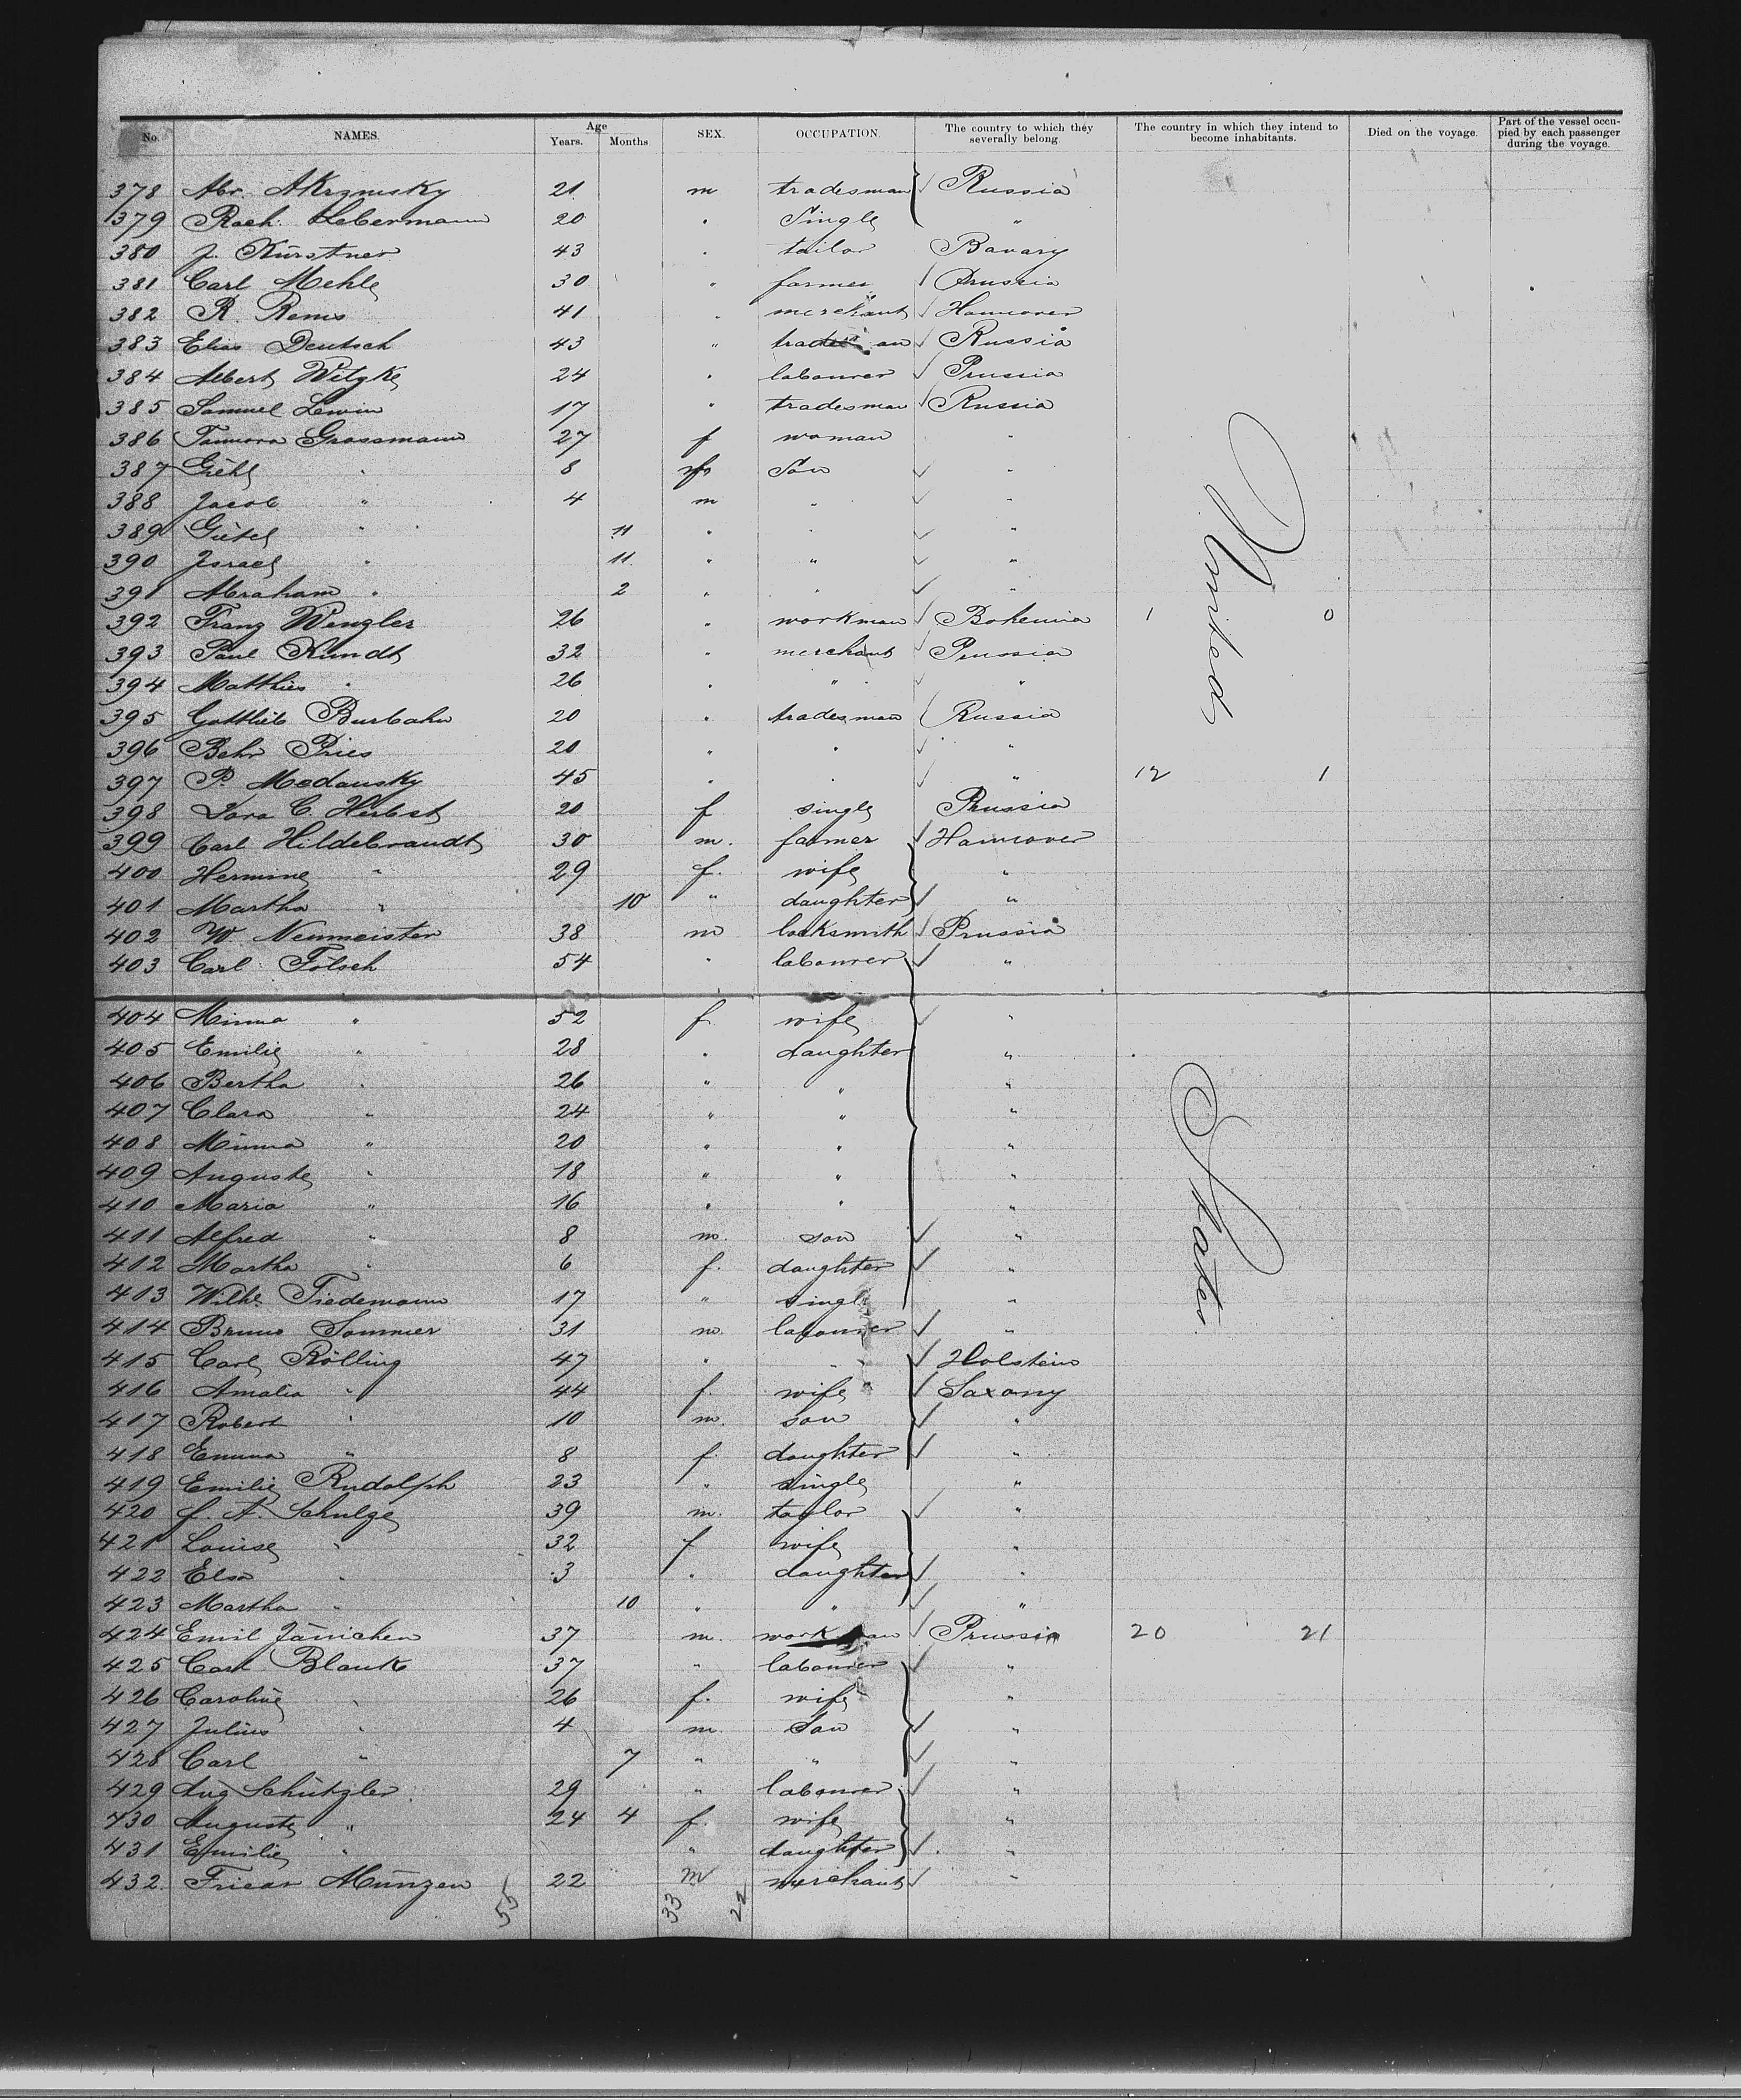 No. NAMES. Age Years. Months SEX. OCCUPATION. The country to which they severally belong The country in which they intend to become inhabitants. Died on the voyage. Part of the vessel occupied by each passenger during the voyage.
378 Abr. 21 m tradesman Russia
379 Rach. Lebermann 20 " Single "
380 J. Kürstner 43 " tailor Bavary
381 Carl Mehle 30 " farmer Prussia
382 R. Rems 41 " merchant Hannover
383 Elias Deutsch 43 " Russia
384 Albert Witzke 24 " labourer Prussia
385 Samuel Lewin 17 " tradesman Russia
386 Grossmann 27 f woman "
387 " 8 Son "
388 Jacob " 4 m " "
389 Gütel " 11 " " "
390 Israel " 11 " " "
391 Abraham " 2 " " "
392 Franz Wengler 26 " workman Bohemia 1 0
393 Paul Kundt 32 " merchant Prussia
394 Matthies " 26 " " "
395 Gottlieb Burbahn 20 " tradesman Russia
396 Behr Pries 20 " " "
397 P. Medansky 45 " " " 12 1
398 C. Herbst 20 f single Prussia
399 Carl Hildebrandt 30 m. farmer Hannover
400 Hermine " 29 f. wife "
401 Martha " 10 " daughter "
402 W. Neumeister 38 m locksmith Prussia
403 Carl Fölsch 54 " labourer "
404 Minna " 52 f wife "
405 Emilie " 28 " daughter "
406 Bertha " 26 " " "
407 Clara " 24 " " "
408 Minna " 20 " " "
409 Auguste " 18 " " "
410 Maria " 16 " " "
411 Alfred " 8 m. son "
412 Martha " 6 f. daughter "
413 Wilhe. Tiedemann 17 " single "
414 Bruno Sommer 31 m. labourer "
415 Carl Rölling 47 " " Holstein
416 Amalia " 44 f. wife Saxony
417 Robert " 10 m. son "
418 Emma " 8 f daughter "
419 Emilie Rudolph 23 " single "
420 F. A. Schulze 39 m. taylor "
421 Louise " 32 f wife "
422 Elsa " 3 " daughter "
423 Martha " 10 " " "
424 Emil Jänichen 37 m. workman Prussia 20 21
425 Carl Blank 37 " labourer "
426 Caroline " 26 f. wife "
427 Julius " 4 m Son "
428 Carl " 7 " " "
429 Aug Schützler 29 " labourer "
430 Auguste " 24 4 f. wife "
431 Emilie " " daughter "
432. Münzen 22 m merchant "
55 33 22
United
States